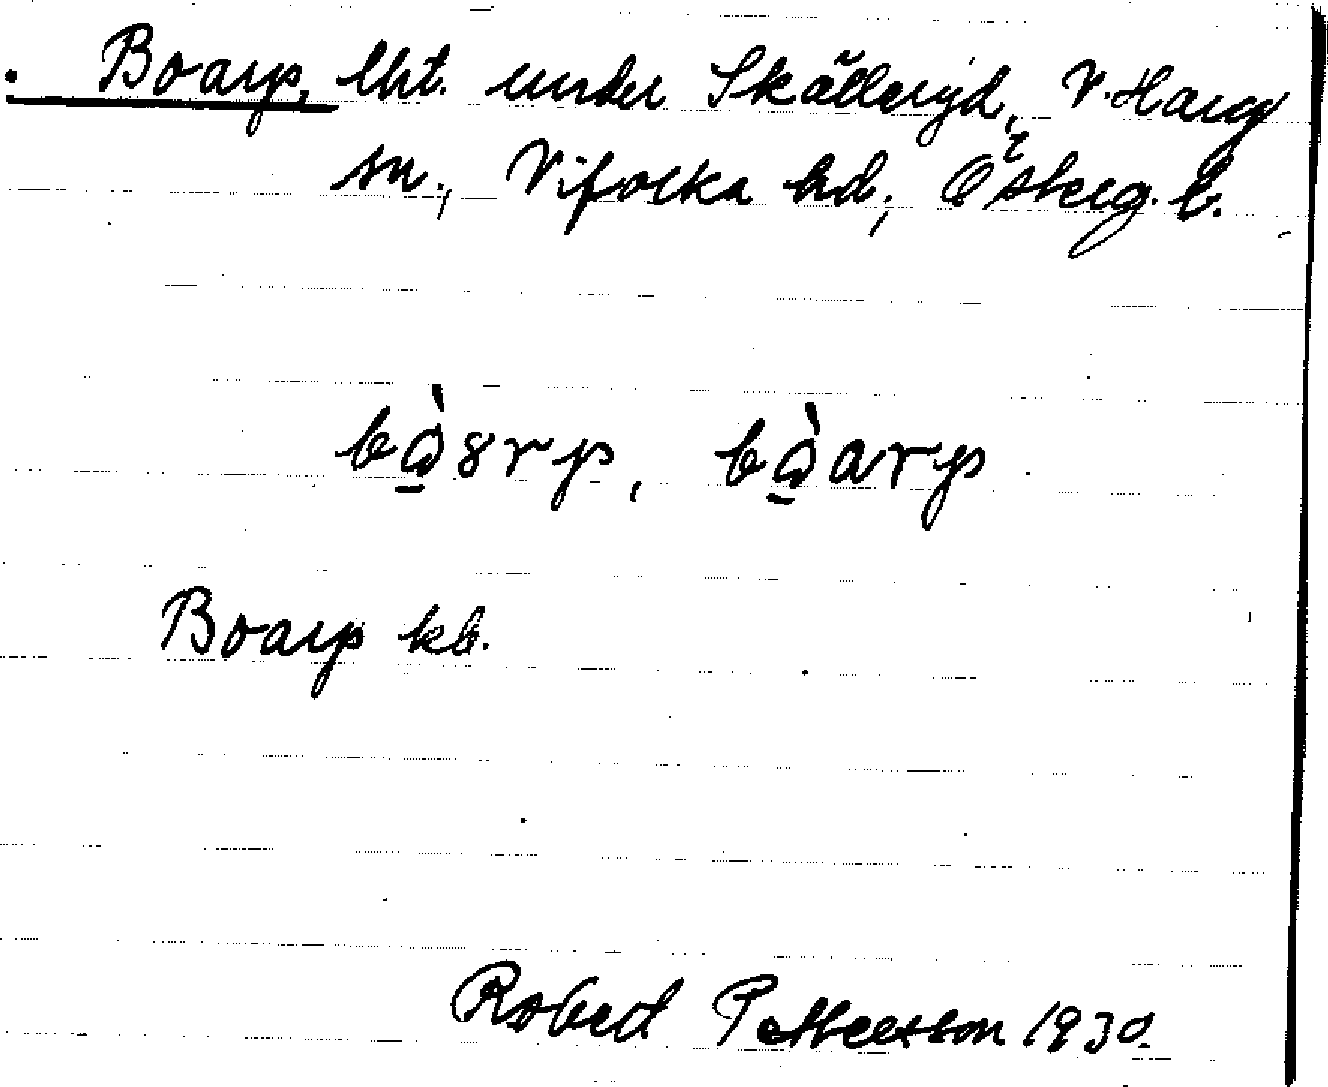 Boarp, lht. under Skålleryd, V. Harg
sn., Vifolka hd, Österg. l.
bɷ̲̀ɤrp, bɷ̲̀arp
Boarp kb.
Robert Pettersson 1930